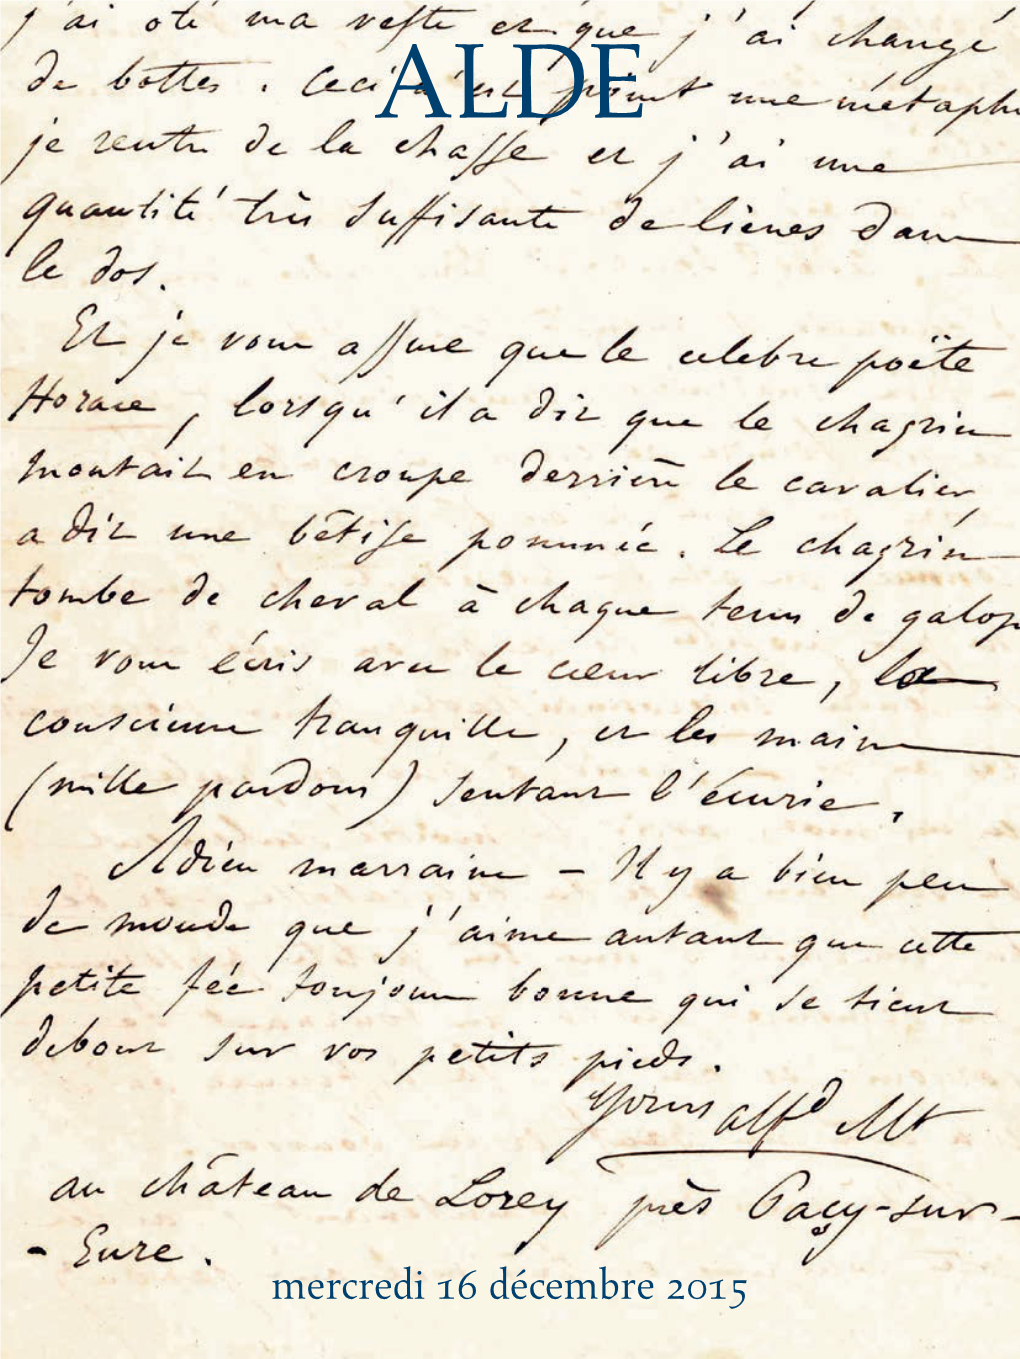 j'ai oté ma veste et que j'ai changé
ALDE
de bottes. Ceci n'est point une métaph
je rentre de la chasse et j'ai une
quantité très suffisante de lieues dans
le dos.
Et je vous assure que le celebre poëte
Horace, lorsqu'il a dit que le chagrin
montait en croupe derrière le cavalier,
a dit une bêtise pommée. Le chagrin
tombe de cheval à chaque tems de galop
Je vous écris avec le cœur libre, la
conscience tranquille, et les mains
(mille pardons) sentant l'écurie.
Adieu marraine – Il y a bien peu
de monde que j'aime autant que cette
petite fée toujours bonne qui se tient
debout sur vos petits pieds.
Yours Alfd Mt
au château de Lorey près Paçy-sur-
- Eure.
mercredi 16 décembre 2015